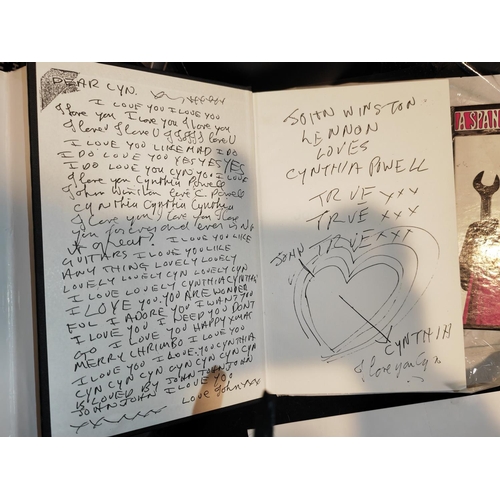 DEAR CYN.
I LOVE YOU I LOVE YOU
I love you I love you I love you
I love U I love U
I LOVE YOU LIKE MAD I DO
I DO LOVE YOU YES YES YES
I DO LOVE YOU CYN YOU I LOVE
I love you Cynthia Powell
John Winston C. Powell
CYNTHIA Cynthia Cynthia
I love you I love you I love
you forever and ever isn't
it great? I LOVE YOU LIKE
GUITARS I LOVE YOU LIKE
ANYTHING LOVELY LOVELY
LOVELY LOVELY CYN LOVELY CYN
I LOVE LOVELY CYNTHIA CYNTHIA
I LOVE YOU. YOU ARE WONDER
FUL I ADORE YOU I WANT YOU
I LOVE YOU I NEED YOU DONT
GO I LOVE YOU HAPPY XMAS
MERRY CHRIMBO I LOVE YOU
I LOVE YOU I LOVE YOU CYNTHIA
CYN CYN CYN CYN CYN CYN CYN
IS LOVED BY JOHN JOHN JOHN
JOHN JOHN I LOVE YOU
LOVE John xx
JOHN WINSTON
LENNON
LOVES
CYNTHIA POWELL
TRUE xxx
TRUE xxx
TRUE xxx
JOHN
CYNTHIA
I love you Cyn
A SPAN